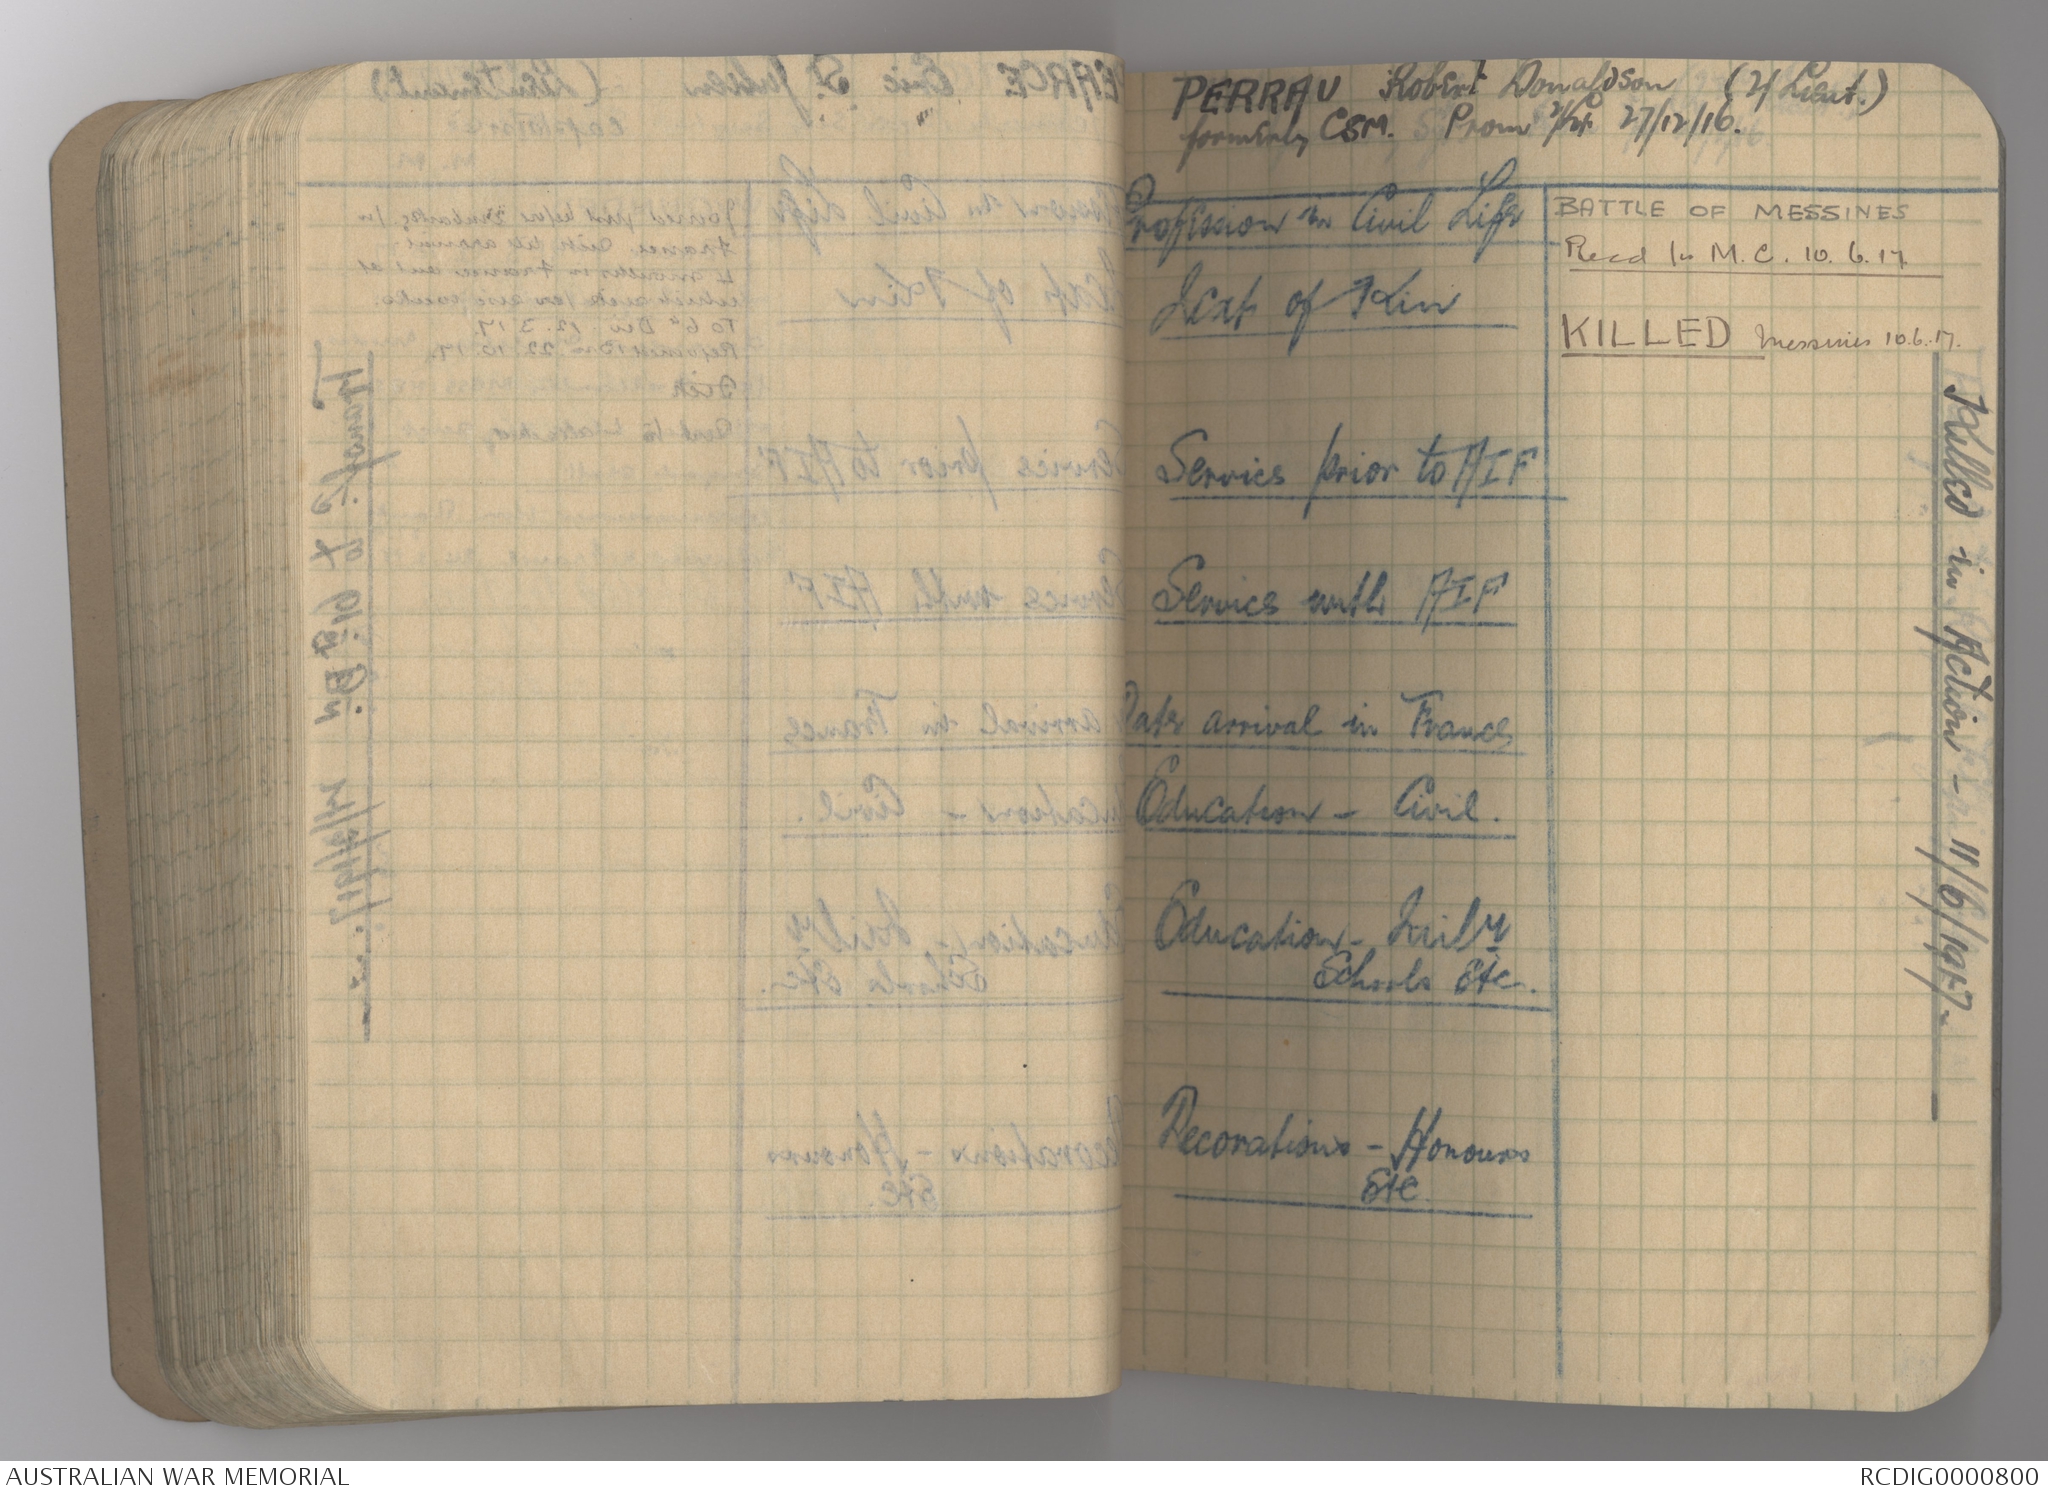 PERRAU Robert Donaldson (2/Lieut.)
formerly CSM. Prom 2/Lt 27/12/16.
Profession in Civil Life
Next of Kin
Service prior to AIF
Service with AIF
Date arrival in France
Education - Civil.
Education - Mily
Schools Etc.
Decorations - Honours
Etc.
BATTLE OF MESSINES
Recd for M.C. 10.6.17
KILLED Messines 10.6.17.
Killed in Action - 11/6/1917 -
AUSTRALIAN WAR MEMORIAL
RCDIG0000800